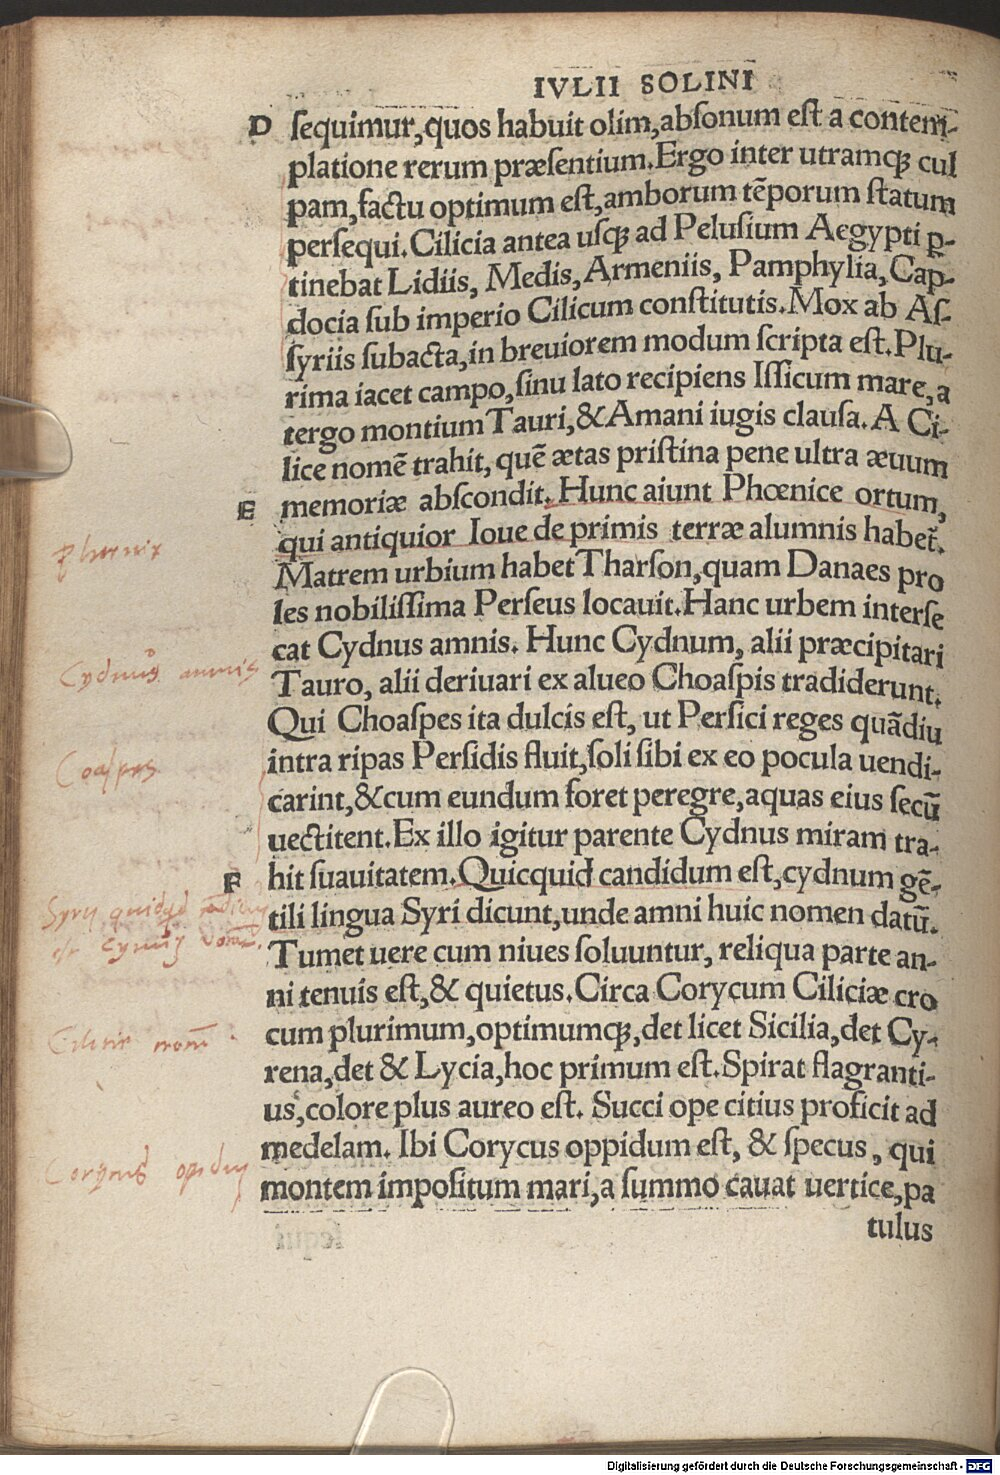 IVLII SOLINI
D ſequimur,quos habuit olim,abſonum eſt a contem-
platione rerum præſentium.Ergo inter utramqꝫ cul
pam,factu optimum eſt,amborum tēporum ſtatum
perſequi.Cilicia antea uſqꝫ ad Peluſium Aegypti ꝑ-
tinebat Lidiis, Medis,Armeniis, Pamphylia,Cap-
docia ſub imperio Cilicum conſtitutis.Mox ab Aſ-
ſyriis ſubacta,in breuiorem modum ſcripta eſt.Plu-
rima iacet campo,ſinu lato recipiens Iſſicum mare,a
tergo montium Tauri,&Amani iugis clauſa.A Ci-
lice nomē trahit,quē ætas priſtina pene ultra æuum
E memoriæ abſcondit.Hunc aiunt Phœnice ortum,
qui antiquior Ioue de primis terræ alumnis habet̄.
Matrem urbium habet Tharſon,quam Danaes pro
les nobiliſſima Perſeus locauit.Hanc urbem interſe
cat Cydnus amnis. Hunc Cydnum, alii præcipitari
Tauro, alii deriuari ex alueo Choaſpis tradiderunt.
Qui Choaſpes ita dulcis eſt, ut Perſici reges quādiu
intra ripas Perſidis fluit,ſoli ſibi ex eo pocula uendi-
carint,&cum eundum foret peregre,aquas eius ſecū
uectitent.Ex illo igitur parente Cydnus miram tra-
F hit ſuauitatem.Quicquid candidum eſt,cydnum gē-
tili lingua Syri dicunt,unde amni huic nomen datū.
Tumet uere cum niues ſoluuntur, reliqua parte an-
ni tenuis eſt,& quietus.Circa Corycum Ciliciæ cro
cum plurimum,optimumqꝫ,det licet Sicilia,det Cy-
rena,det & Lycia,hoc primum eſt.Spirat flagranti-
us,colore plus aureo eſt. Succi ope citius proficit ad
medelam. Ibi Corycus oppidum eſt, & ſpecus, qui
montem impoſitum mari,a ſummo cauat uertice,pa
tulus
Phœnix
Cydnus amnis
Coaſpes
Syry quidqd
Digitalisierung gefördert durch die Deutsche Forschungsgemeinschaft - DFG